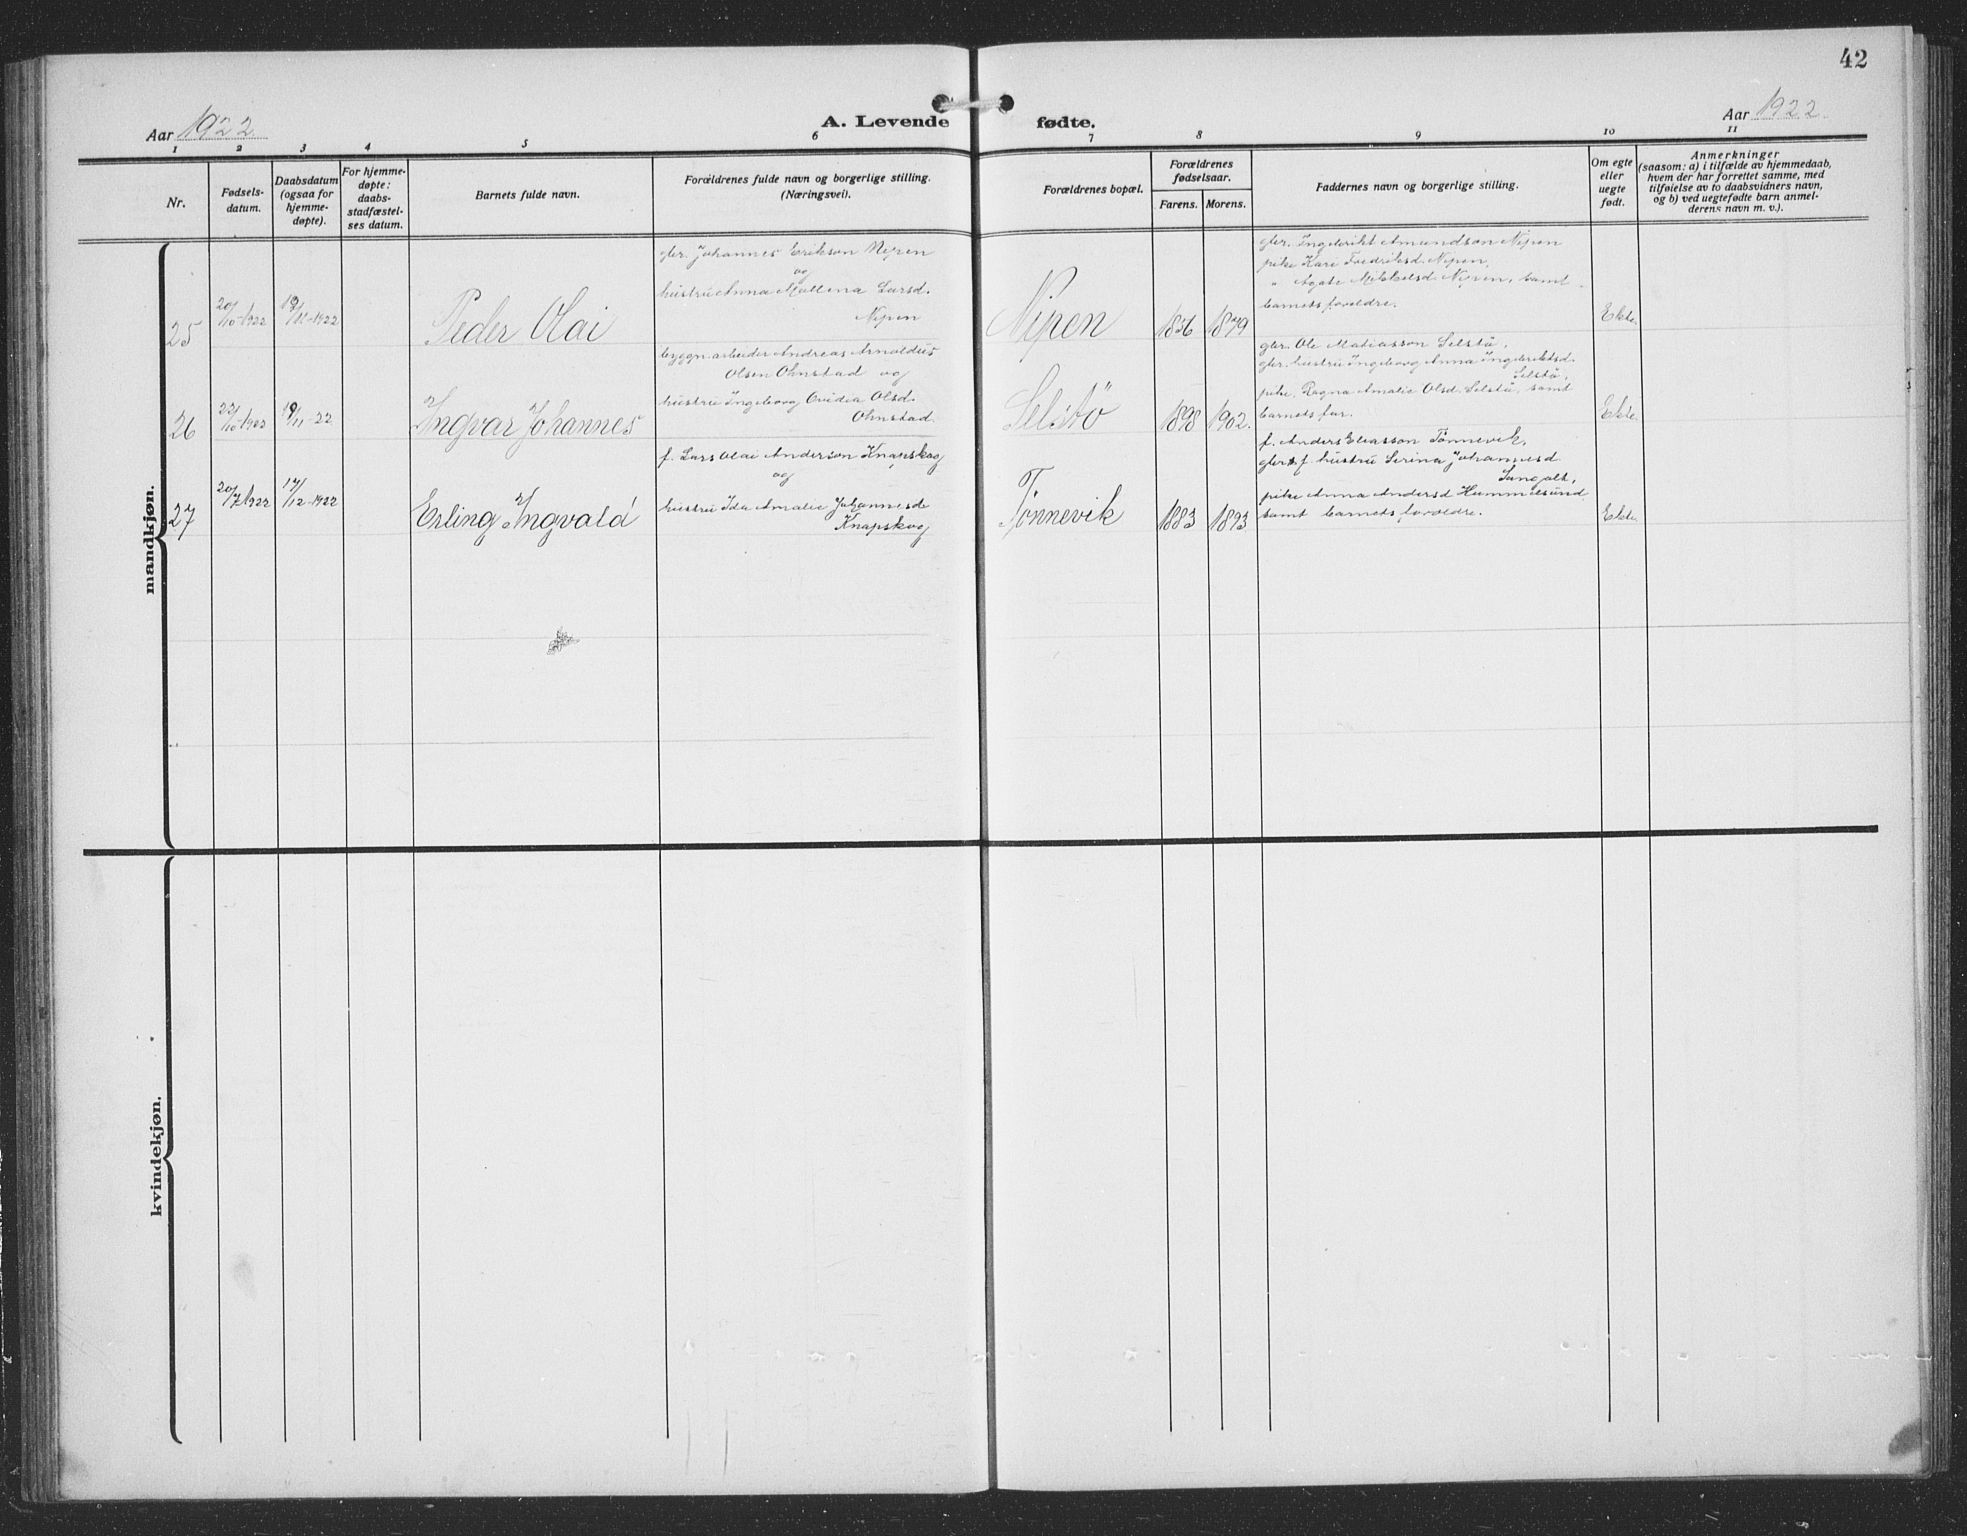 42
Aar 1922
A. Levende fødte.
Aar 1922.
1 2 3 4 5 6 7 8 9 10 11
Nr.
Fødsels-
datum.
Daabsdatum
(ogsaa for
hjemme-
døpte).
For hjemme-
døpte:
daabs-
stadfæstel-
ses datum.
Barnets fulde navn.
Forældrenes fulde navn og borgerlige stilling.
(Næringsvei).
Forældrenes bopæl.
Forældrenes
fødselsaar.
Farens. Morens.
Faddernes navn og borgerlige stilling.
Om egte
eller
uegte
født.
Anmerkninger
(saasom: a) i tilfælde av hjemmedaab,
hvem der har forrettet samme, med
tilføielse av to daabsvidners navn,
og b) ved uegtefødte barn anmel-
derens navn m. v.).
mandkjøn.
25
20/10-1922
19/11-1922
Peder Olai
gbr. Johannes Erikson Nipen
og
hustru Anna Mallena Larsd.
Nipen
Nipen
1876 1879
gbr. Ingebrikt Amundson Nipen
pike Kari Fredriksd. Nipen,
" Agate Mikkelsd. Nipen, samt
barnets foreldre.
Ekte.
26
22/10-1922
19/11-22
Ingvar Johannes
byggn.arbeider Andreas Arnoldus
Olsen Ohnstad og
hustru Ingeborg Ovidia Olsd.
Ohnstad.
Selstö
1898 1902.
gbr. Ole Matiasson Selstö,
gbr. hustru Ingeborg Anna Ingebriktsd.
Selstö,
pike. Ragna Amalie Olsd. Selstö samt
barnets far.
Ekte.
27
20/7 1922
17/12-1922
Erling Ingvald
f. Lars Olai Anderson Knapskog
og
hustru Ida Amalie Johannesd.
Knapskog
Tønnevik
1883 1893
f. Anders Eliasson Tönnevik,
gbr.f. hustru Serina Johannesd
Sangolt,
pike Anna Andersd Hummelsund
samt barnets foreldre.
Ekte.
kvindekjøn.